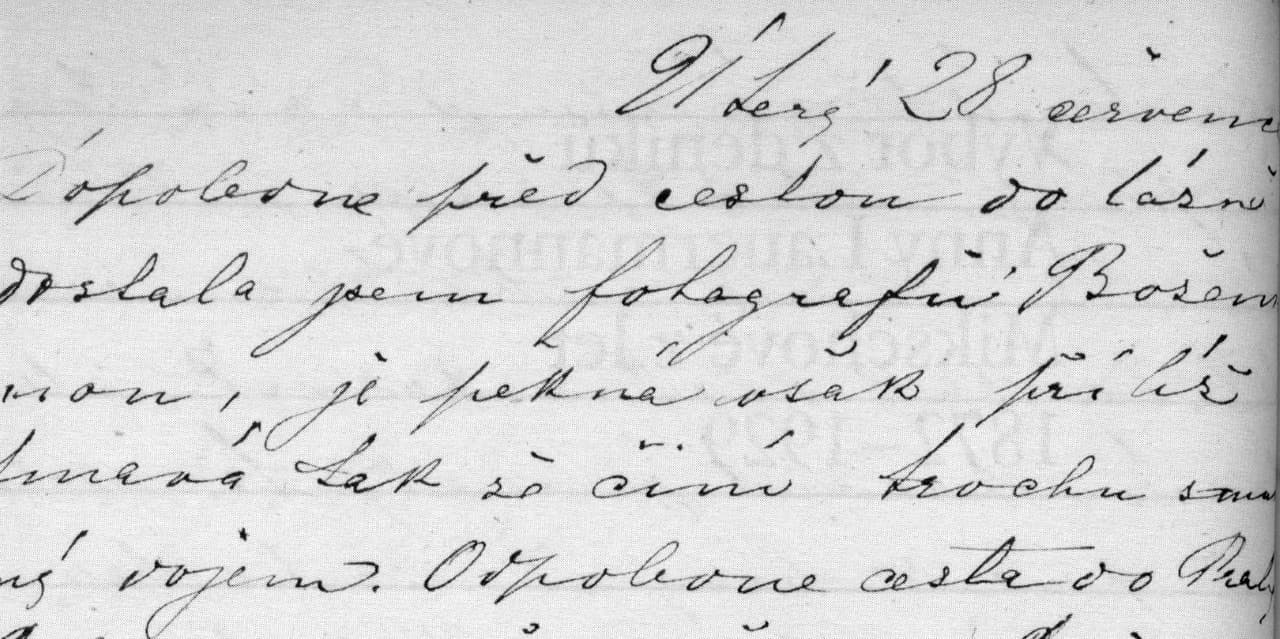 Úterý 28 červenc
Dopoledne před cestou do lázní
dostala jsem fotografii Božen
nou, je pěkná však příliš
tmavá tak že činí trochu smu
ný dojem. Odpoledne cesta do Prahy